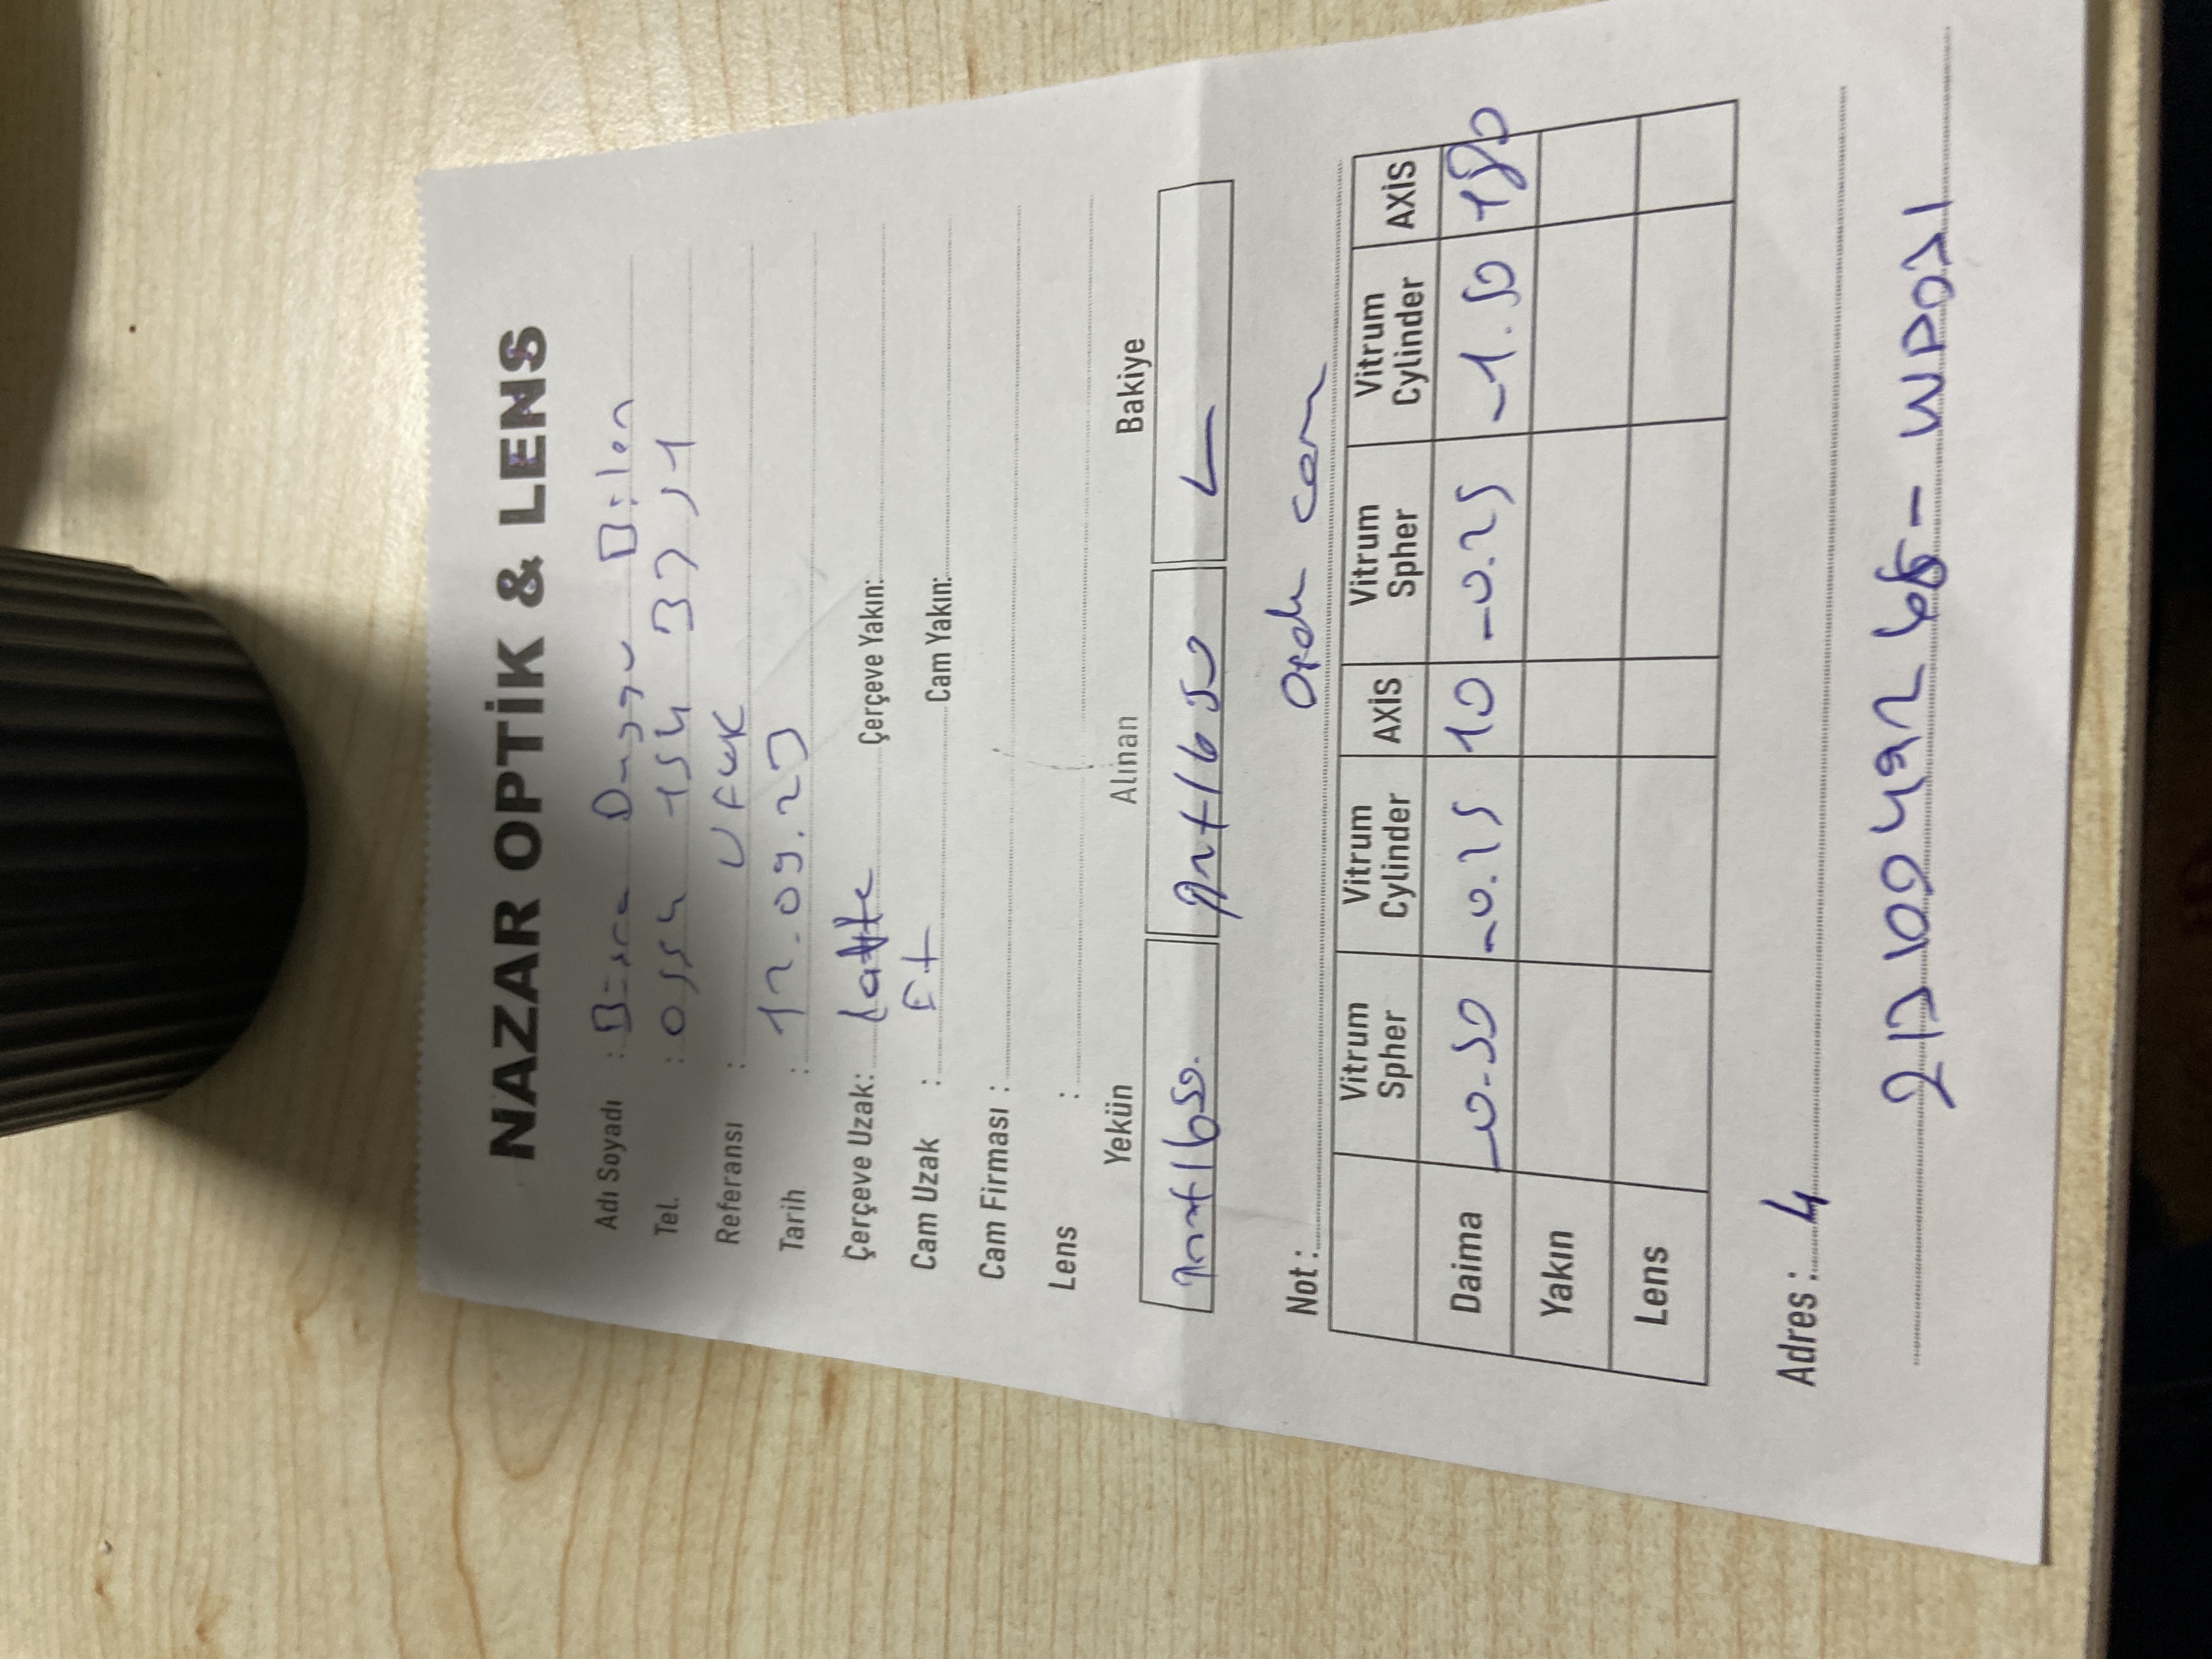 NAZAR OPTİK & LENS
Adı Soyadı : Büşra Duygu Bilen
Tel. : 0554 154 37 51
Referansı : UFUK
Tarih : 12.09.23
Çerçeve Uzak: latte Çerçeve Yakın:
Cam Uzak : Cam Yakın:
Cam Firması :
Lens :
Yekün Alınan Bakiye
+1650. +1650 —
Not : cam
Vitrum Spher Vitrum Cylinder AXİS Vitrum Spher Vitrum Cylinder AXİS
Daima -0.50 -0.25 10 -0.25 -1.50 180
Yakın
Lens
Adres : 4